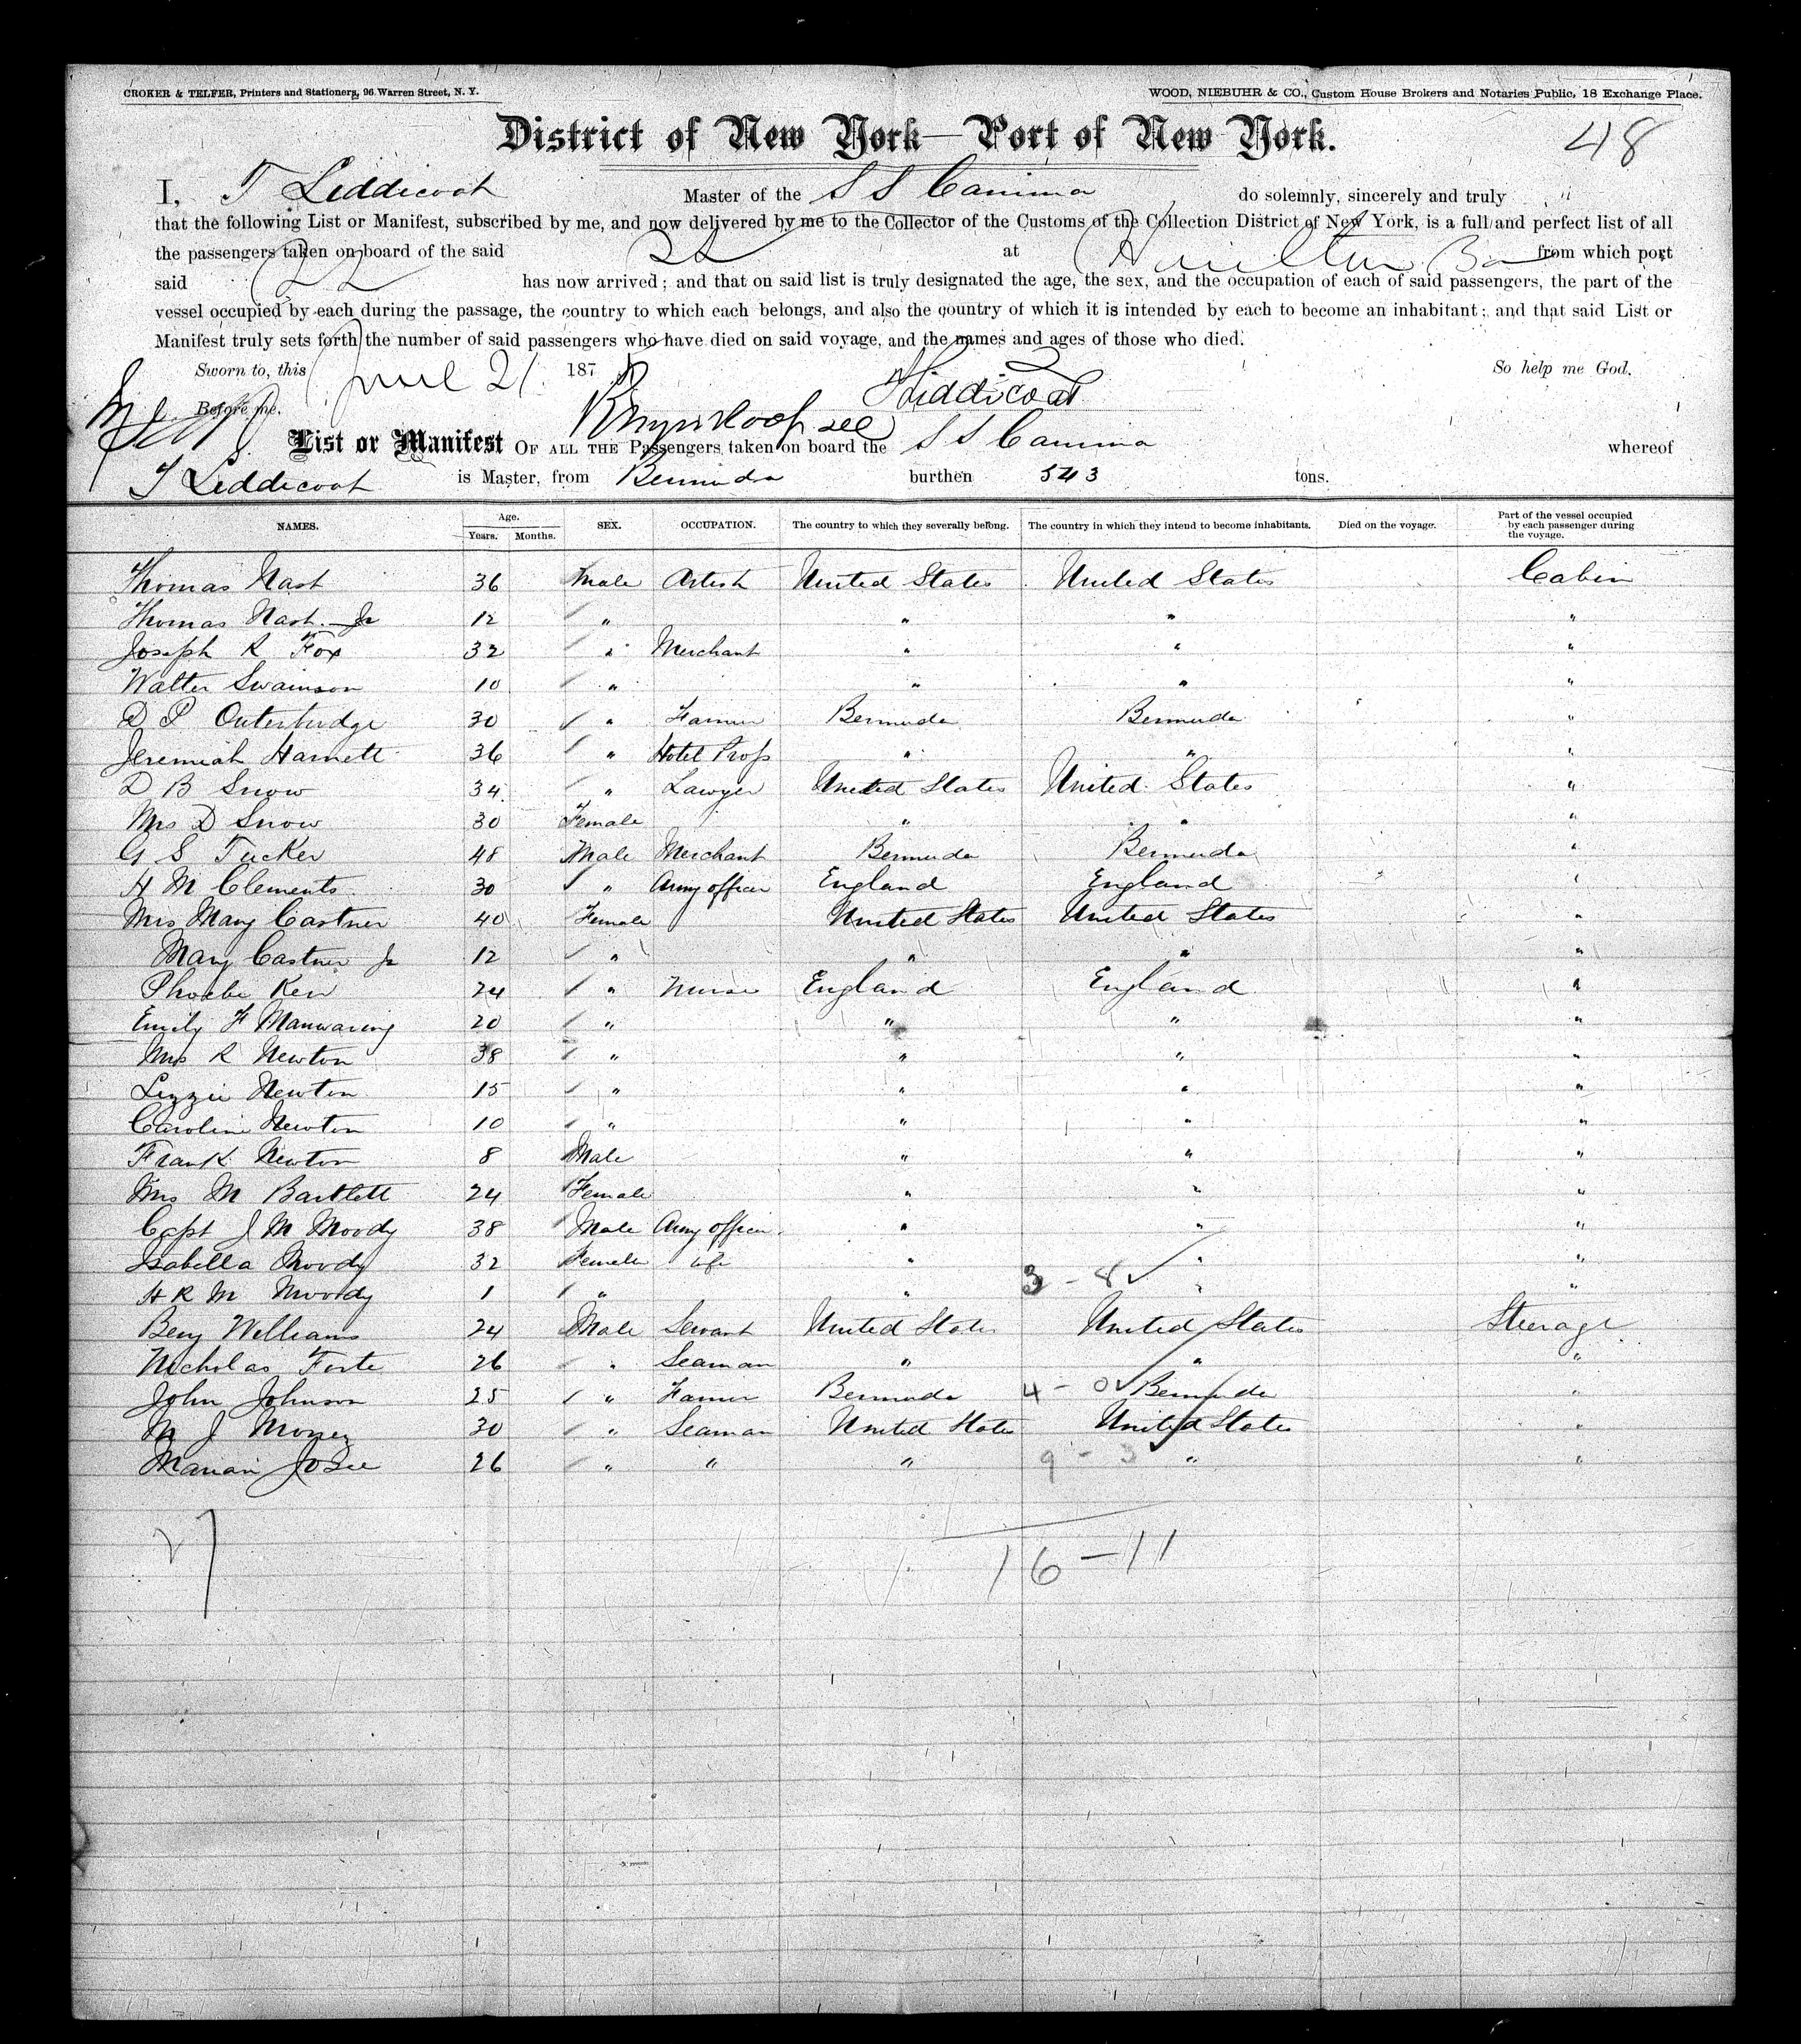 CROKER & TELFER, Printers and Stationers, 96 Warren Street, N. Y. WOOD, NIEBUHR & CO., Custom House Brokers and Notaries Public, 18 Exchange Place.
District of New York—Port of New York. 48
I, T Leddicoat Master of the S S Canima do solemnly, sincerely and truly "
that the following List or Manifest, subscribed by me, and now delivered by me to the Collector of the Customs of the Collection District of New York, is a full and perfect list of all
the passengers taken on board of the said at Hamilton from which port
said has now arrived; and that on said list is truly designated the age, the sex, and the occupation of each of said passengers, the part of the
vessel occupied by each during the passage, the country to which each belongs, and also the country of which it is intended by each to become an inhabitant; and that said List or
Manifest truly sets forth the number of said passengers who have died on said voyage, and the names and ages of those who died.
Sworn to, this June 21 187 So help me God.
Before me. Liddicoat
List or Manifest OF ALL THE Passengers taken on board the S S Canima whereof
T Leddicoat is Master, from Bermuda burthen 543 tons.
NAMES. Age. Years. Months. SEX. OCCUPATION. The country to which they severally belong. The country in which they intend to become inhabitants. Died on the voyage. Part of the vessel occupied by each passenger during the voyage.
Thomas Nast 36 Male Artist United States United States Cabin
Thomas Nast Jr 12 " " " "
Joseph R Fox 32 " Merchant " " "
Walter Swainson 10 " " " "
D P Outerbridge 30 " Farmer Bermuda Bermuda "
Jeremiah Harnett 36 " Hotel Prop " " "
D B Snow 34 " Lawyer United States United States "
Mrs D Snow 30 Female " " "
G S Tucker 48 Male Merchant Bermuda Bermuda "
H M Clements 30 " Army officer England England "
Mrs Mary Castner 40 Female United States United States "
Mary Castner Jr 12 " " " "
Phoebe Kerr 24 " Nurse England England "
Emily F Manwaring 20 " " " "
Mrs R Newton 38 " " " "
Lizzie Newton 15 " " " "
Caroline Newton 10 " " " "
Frank Newton 8 Male " " "
Mrs M Bartlett 24 Female " " "
Capt J M Moody 38 Male Army officer " " "
Isabella Moody 32 Female Wife " " "
H R M Moody 1 " " 3 - 8 " "
Benj Williams 24 Male Servant United States United States Steerage
Nicholas Forte 26 " Seaman " " "
John Johnson 25 " Farmer Bermuda 4 - 0 Bermuda "
M J Money 30 " Seaman United States United States "
Marian 26 " " " 9 - 3 " "
27 16 - 11